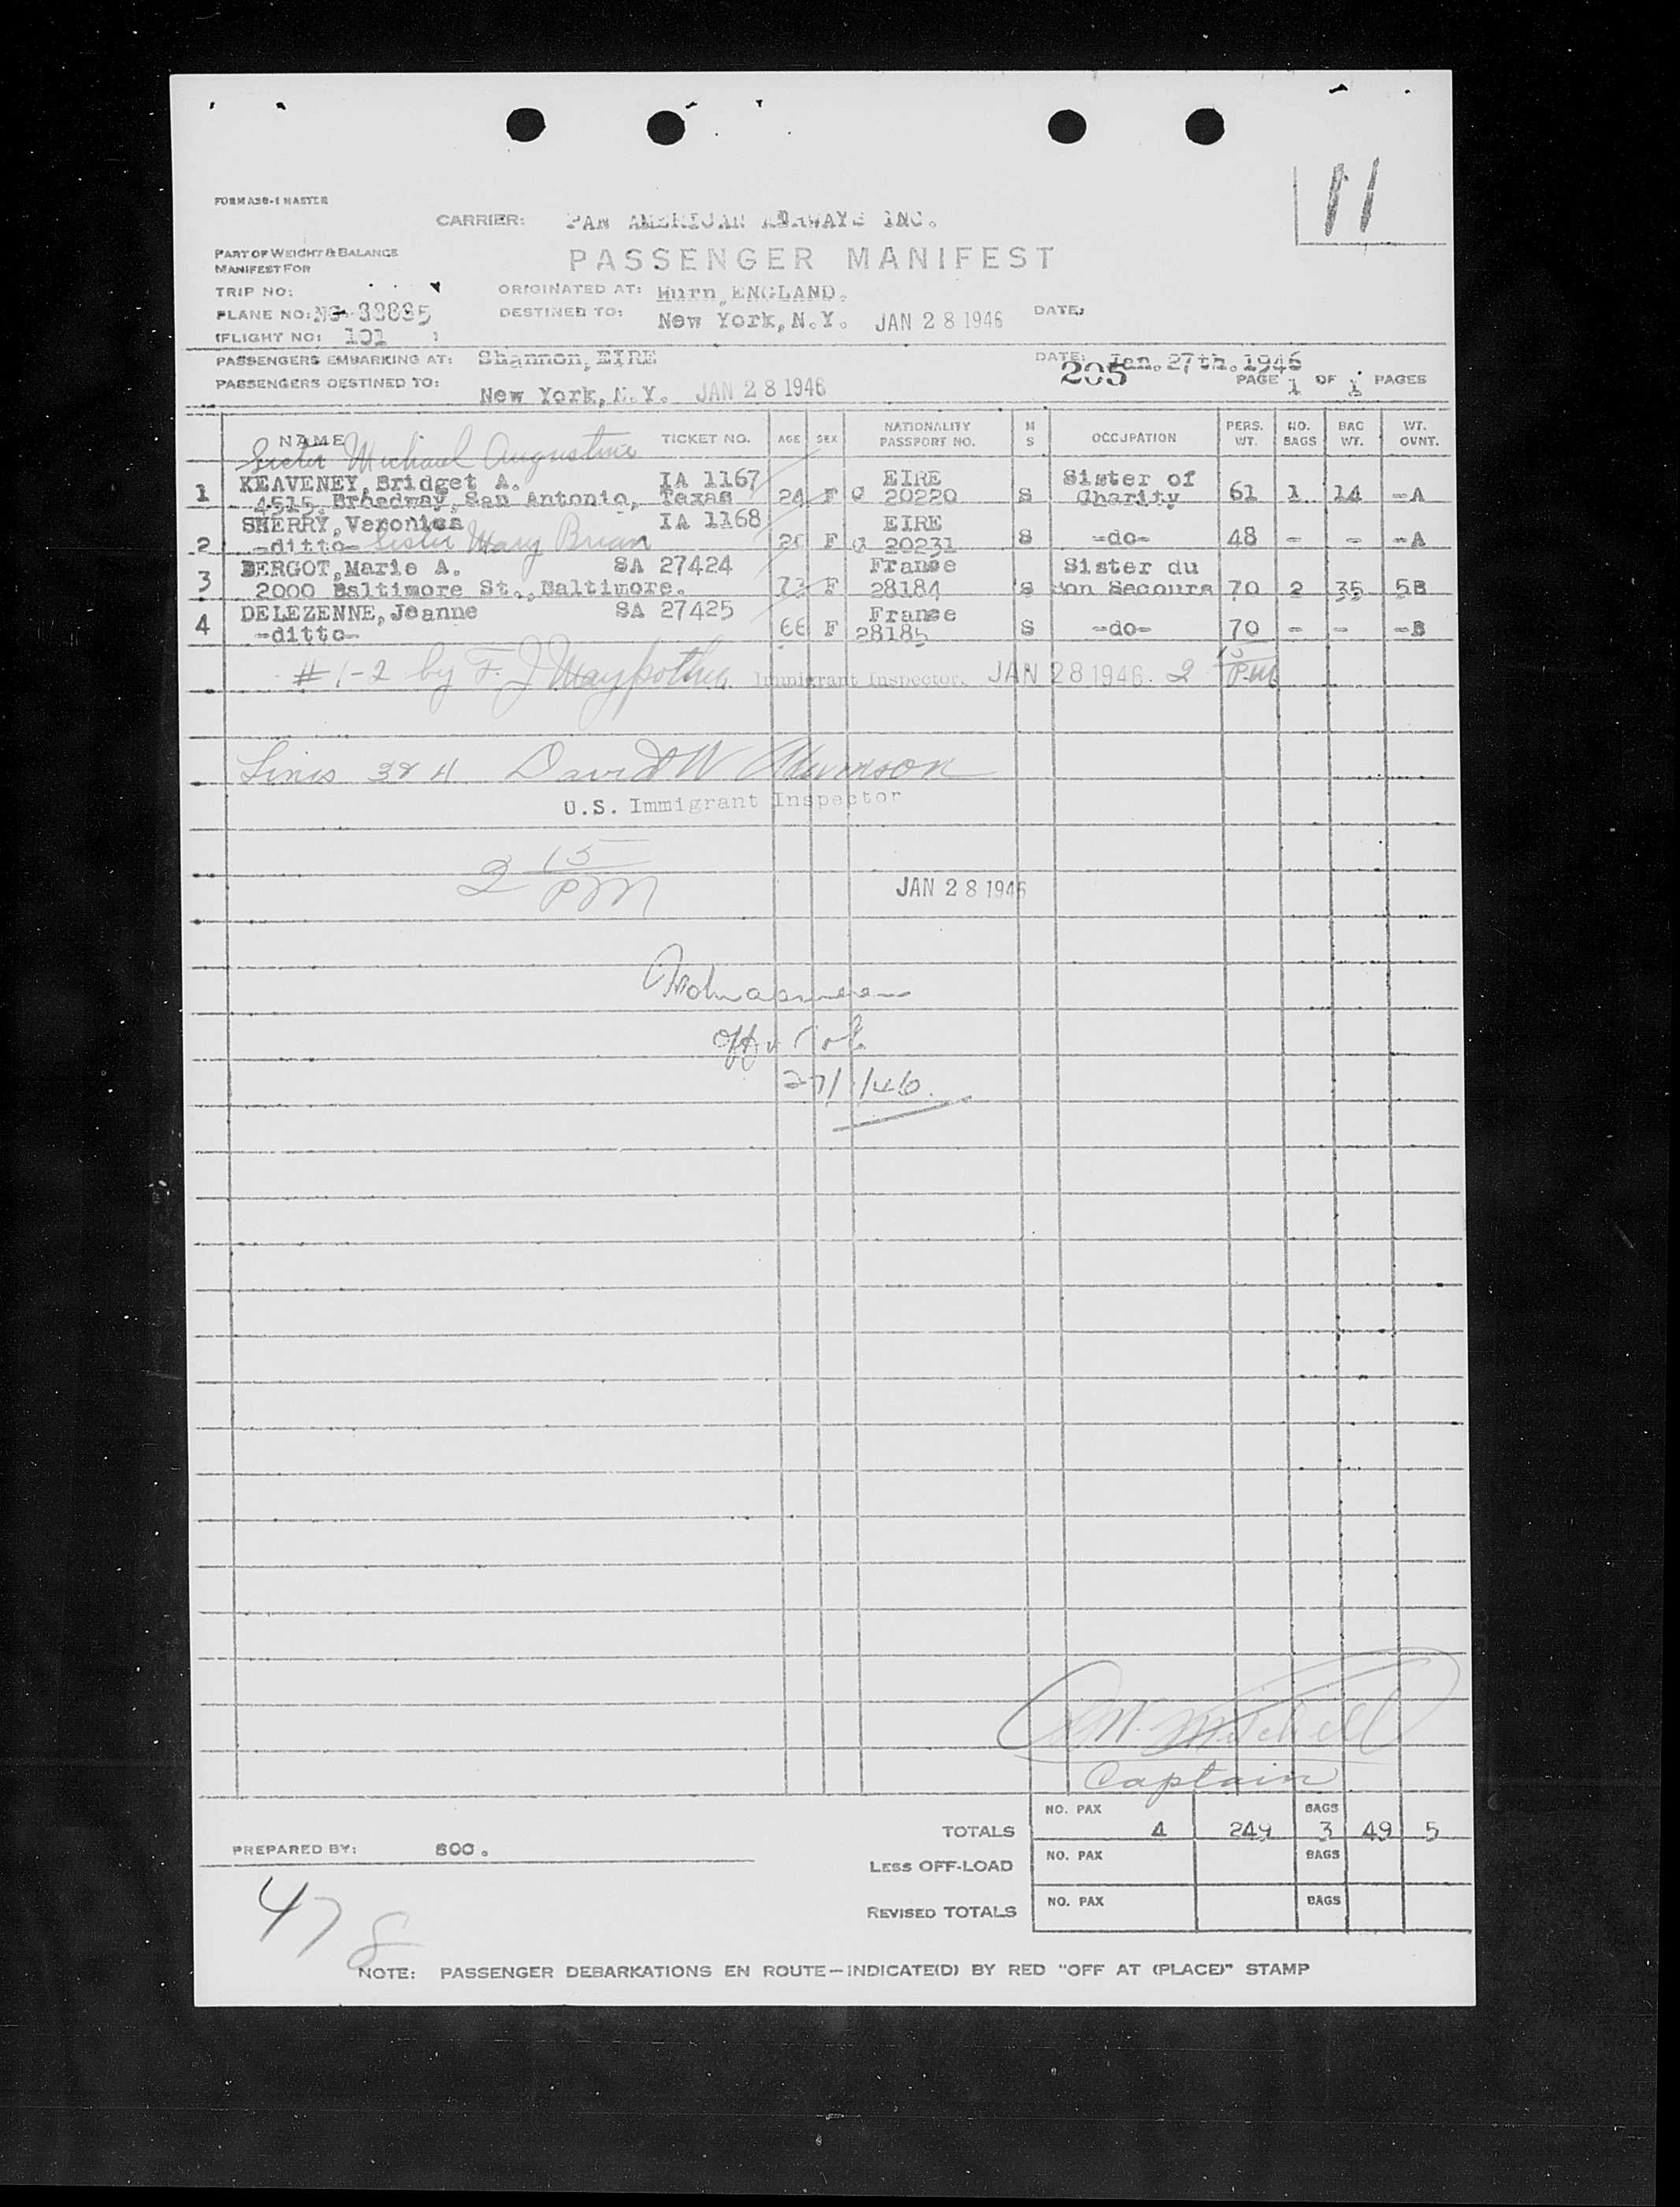 11
FORM A30-1 MASTER
CARRIER: PAN AMERICAN AIRWAYS INC.
PART OF WEIGHT & BALANCE
MANIFEST FOR
PASSENGER MANIFEST
TRIP NO:
ORIGINATED AT: Hurn, ENGLAND.
PLANE NO: NC-88885
DESTINED TO: New York, N.Y. JAN 28 1946 DATE;
(FLIGHT NO: 101 )
PASSENGERS EMBARKING AT: Shannon, EIRE DATE: Jan. 27th. 1946
205
PASSENGERS DESTINED TO: New York, N.Y. JAN 28 1946 PAGE 1 OF 1 PAGES
NAME TICKET NO. AGE SEX NATIONALITY PASSPORT NO. M S OCCUPATION PERS. WT. NO. BAGS BAG WT. WT. OVNT.
Sister Michael Augustine
1 KEAVENEY, Bridget A. IA 1167 EIRE Sister of
4515, Broadway, San Antonio, Texas 24 F 20220 S Charity 61 1 14 -A
SHERRY, Veronica IA 1168 EIRE
2 -ditto- Sister Mary Brian F 20231 S -do- 48 - - -A
BERGOT, Marie A. SA 27424 France Sister du
3 2000 Baltimore St., Baltimore. 73 F 28184 S Bon Secours 70 2 35 5B
4 DELEZENNE, Jeanne SA 27425 France
-ditto- 66 F 28185 S -do- 70 - - -B
#1-2 by F. J. Immigrant Inspector. JAN 28 1946. 2 15 PM
Lines 3 & 4 David W
U.S. Immigrant Inspector
2 15 PM
JAN 28 1946
27/1/46.
Mitchell
Captain
NO. PAX BAGS
TOTALS 4 249 3 49 5
PREPARED BY: SOO.
LESS OFF-LOAD NO. PAX BAGS
REVISED TOTALS NO. PAX BAGS
47 8
NOTE: PASSENGER DEBARKATIONS EN ROUTE—INDICATE(D) BY RED "OFF AT (PLACE)" STAMP